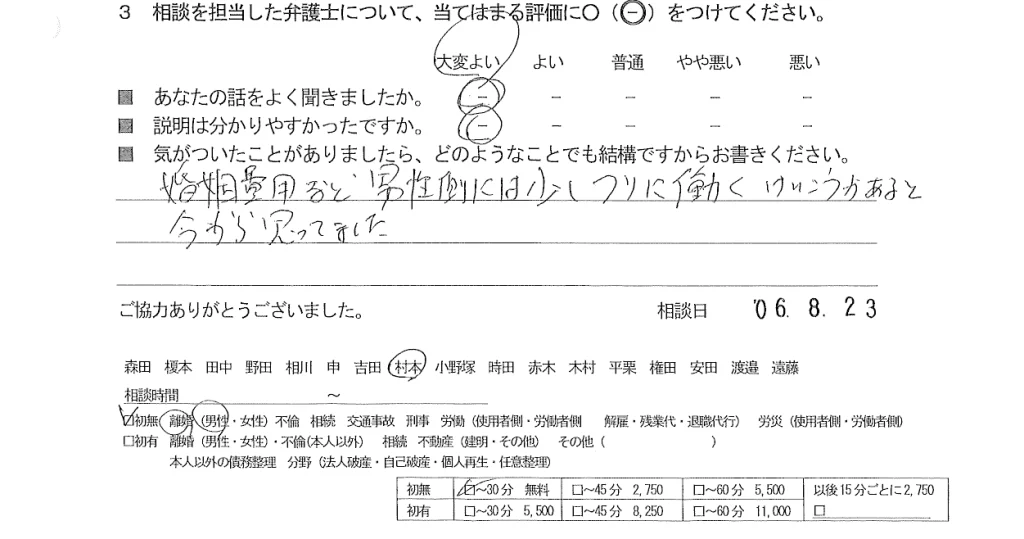 3 相談を担当した弁護士について、当てはまる評価に○（㊀）をつけてください。
大変よい よい 普通 やや悪い 悪い
■ あなたの話をよく聞きましたか。 － － － － －
■ 説明は分かりやすかったですか。 － － － － －
■ 気がついたことがありましたら、どのようなことでも結構ですからお書きください。
婚姻費用など 男性側には少しフリに働くけいこうがあると
今から思ってました
ご協力ありがとうございました。 相談日 '06.8.23
森田 榎本 田中 野田 相川 申 吉田 村本 小野塚 時田 赤木 木村 平栗 権田 安田 渡邉 遠藤
相談時間 ～
☑初無 離婚（男性・女性）不倫 相続 交通事故 刑事 労働（使用者側・労働者側 解雇・残業代・退職代行） 労災（使用者側・労働者側）
□初有 離婚（男性・女性）・不倫(本人以外) 相続 不動産（建明・その他） その他（ ）
本人以外の債務整理 分野（法人破産・自己破産・個人再生・任意整理）
初無 ☑～30分 無料 □～45分 2,750 □～60分 5,500 以後15分ごとに2,750
初有 □～30分 5,500 □～45分 8,250 □～60分 11,000 □